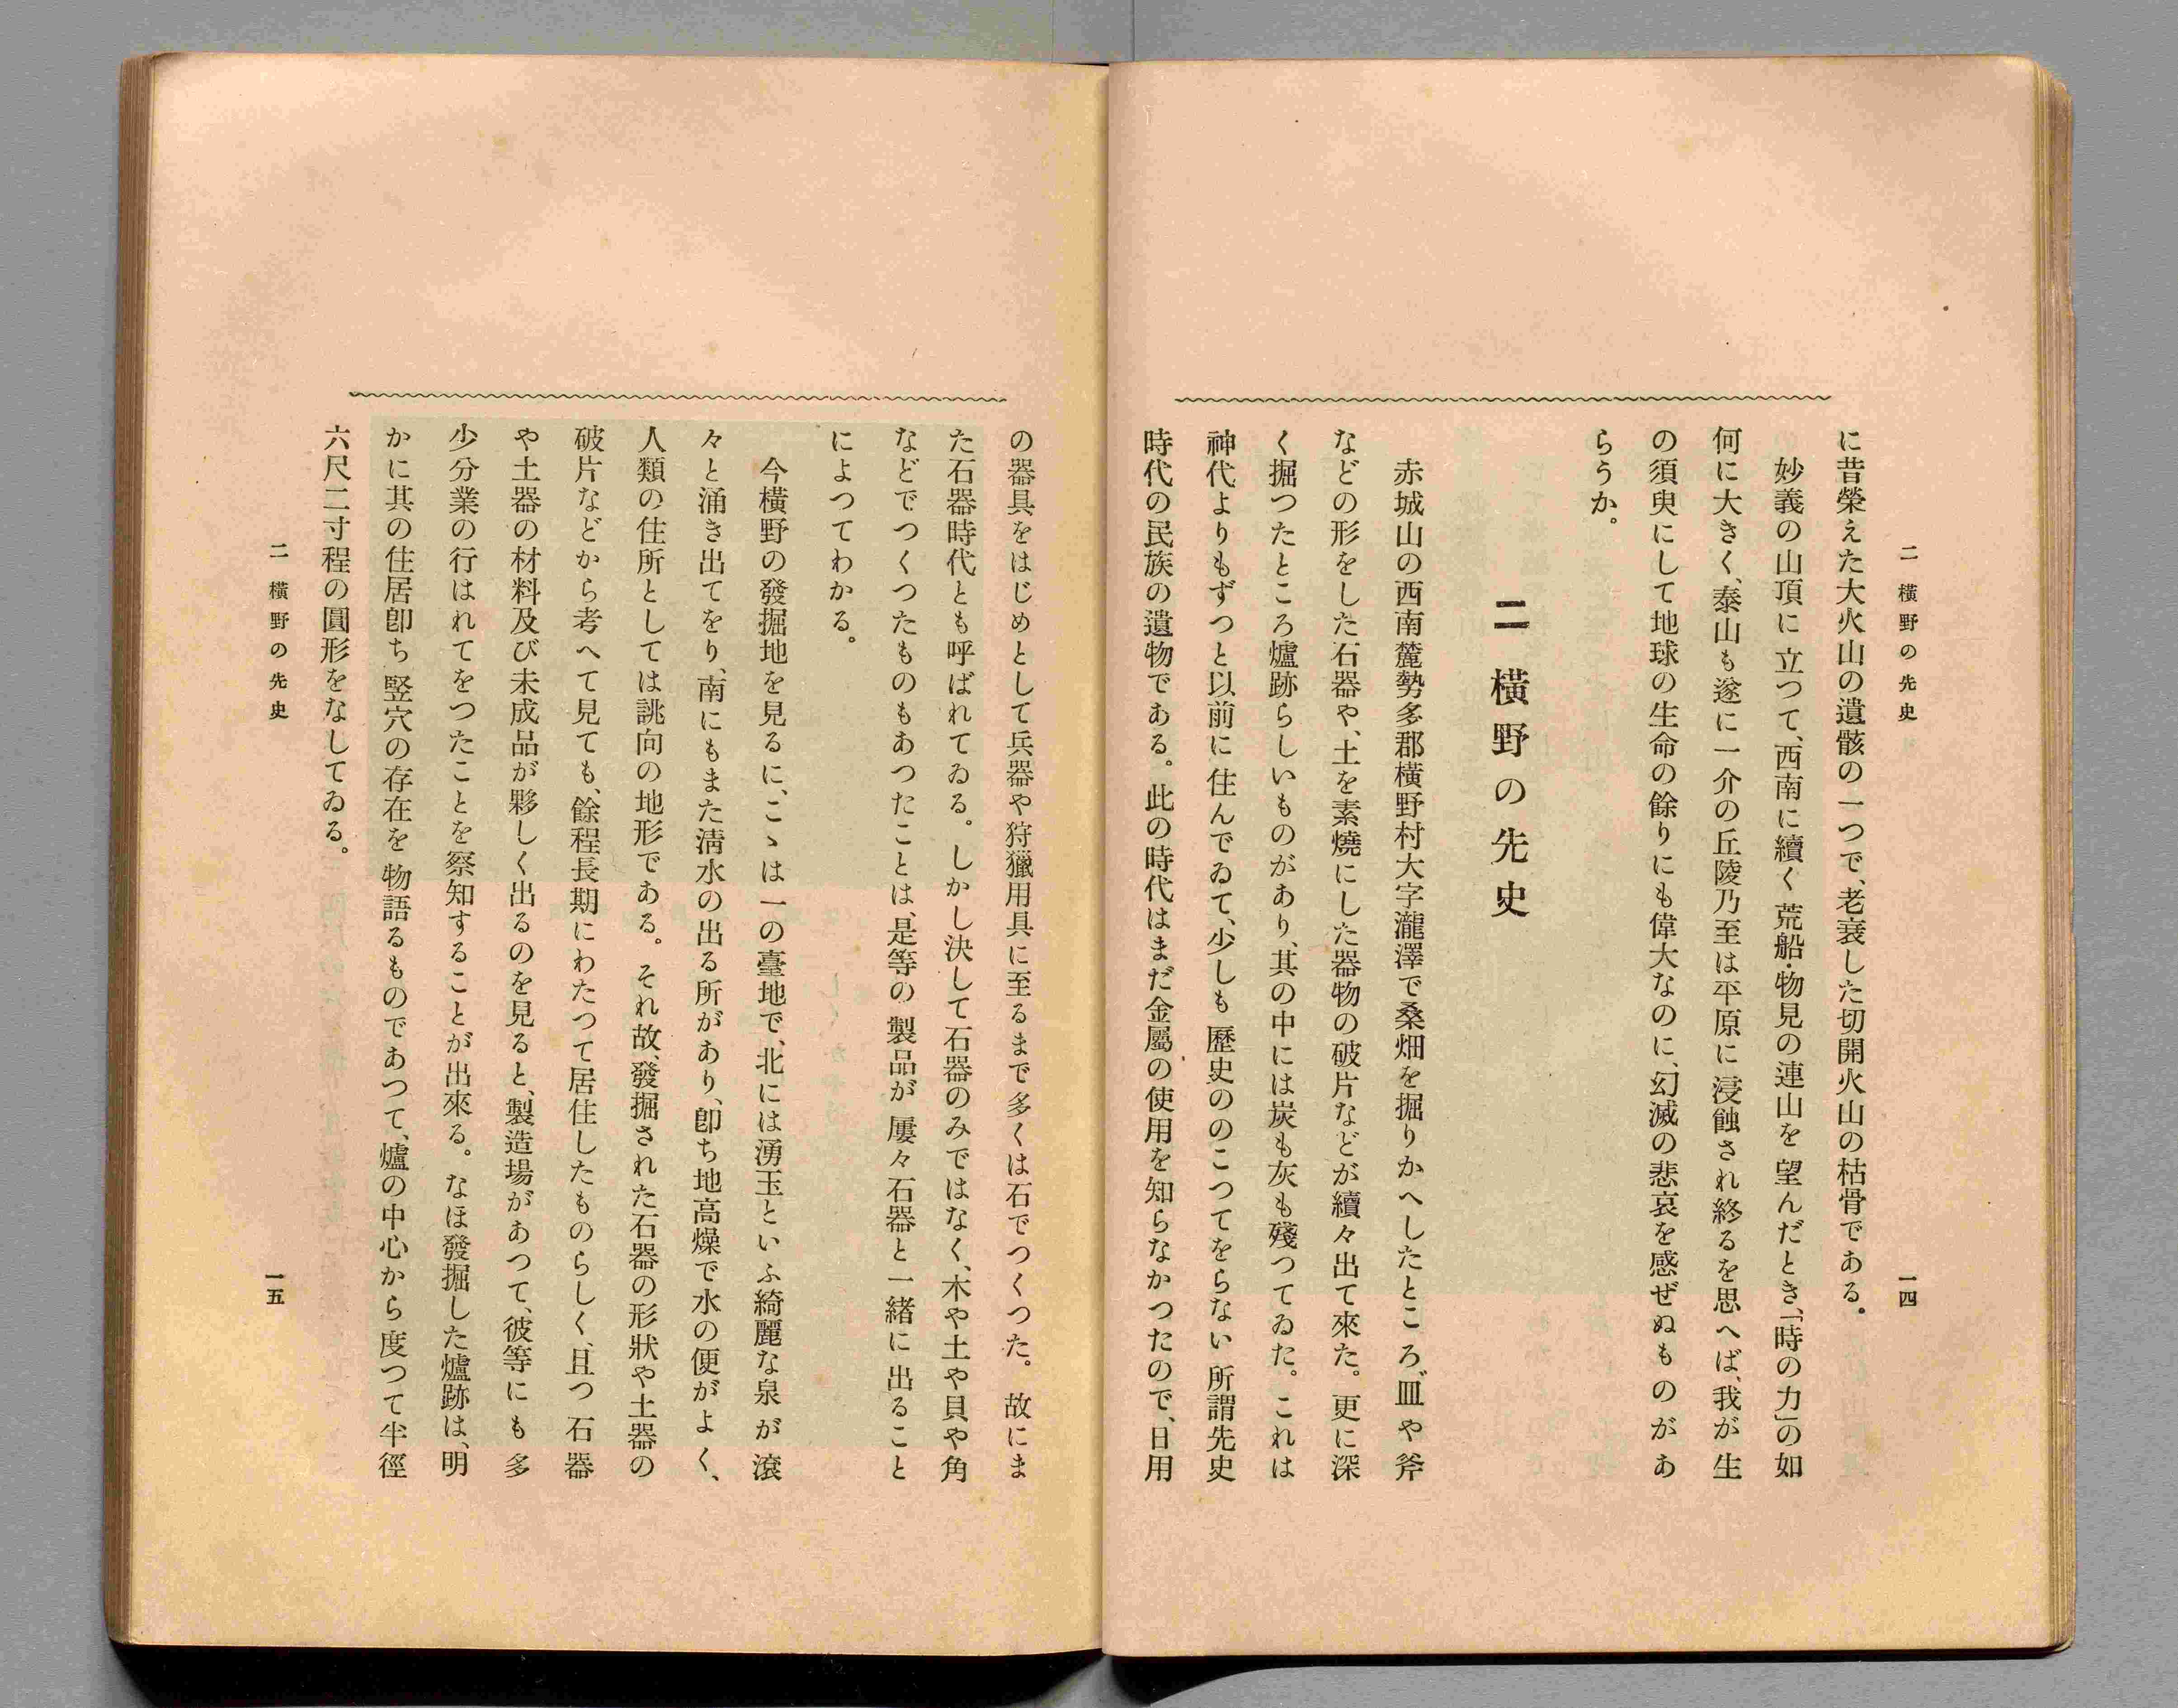 二 橫野の先史
一四
に昔榮えた大火山の遺骸の一つで、老衰した切開火山の枯骨である。
妙義の山頂に立つて、西南に續く荒船・物見の連山を望んだとき、「時の力」の如
何に大きく、泰山も遂に一介の丘陵乃至は平原に浸蝕され終るを思へば、我が生
の須臾にして地球の生命の餘りにも偉大なのに、幻滅の悲哀を感ぜぬものがあ
らうか。
二 橫野の先史
赤城山の西南麓勢多郡橫野村大字瀧澤で桑畑を掘りかへしたところ、皿や斧
などの形をした石器や、土を素燒にした器物の破片などが續々出て來た。更に深
く掘つたところ爐跡らしいものがあり、其の中には炭も灰も殘つてゐた。これは
神代よりもずつと以前に住んでゐて、少しも歷史ののこつてをらない所謂先史
時代の民族の遺物である。此の時代はまだ金屬の使用を知らなかつたので、日用
の器具をはじめとして兵器や狩獵用具に至るまで多くは石でつくつた。故にま
た石器時代とも呼ばれてゐる。しかし決して石器のみではなく、木や土や貝や角
などでつくつたものもあつたことは、是等の製品が屢々石器と一緒に出ること
によつてわかる。
今橫野の發掘地を見るに、こゝは一の臺地で、北には湧玉といふ綺麗な泉が滾
々と涌き出てをり、南にもまた淸水の出る所があり、卽ち地高燥で水の便がよく、
人類の住所としては誂向の地形である。それ故、發掘された石器の形狀や土器の
破片などから考へて見ても、餘程長期にわたつて居住したものらしく、且つ石器
や土器の材料及び未成品が夥しく出るのを見ると、製造場があつて、彼等にも多
少分業の行はれてをつたことを察知することが出來る。なほ發掘した爐跡は、明
かに其の住居卽ち竪穴の存在を物語るものであつて、爐の中心から度つて半徑
六尺二寸程の圓形をなしてゐる。
二 橫野の先史
一五